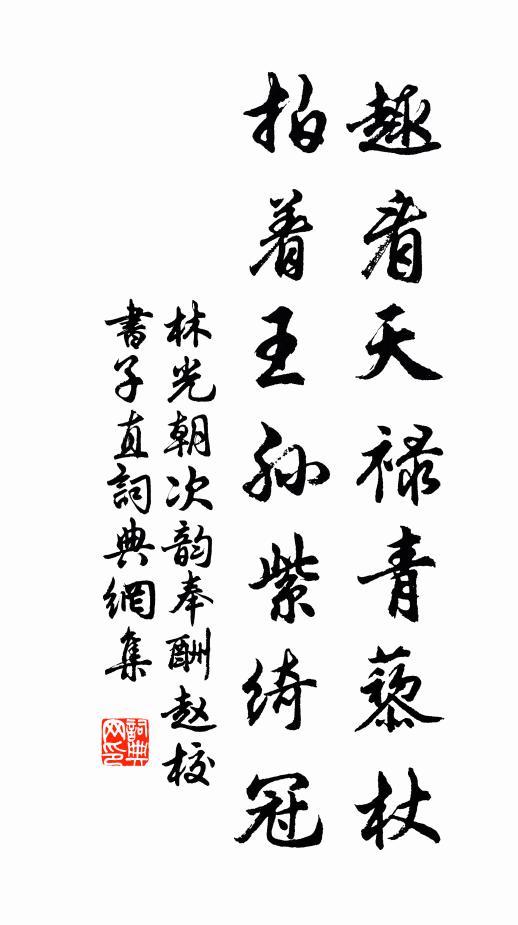 趣看天禄青藜杖
拍着王孙紫绮冠
林光朝次韵奉酬赵校
書子直詞典網集
詞典网印